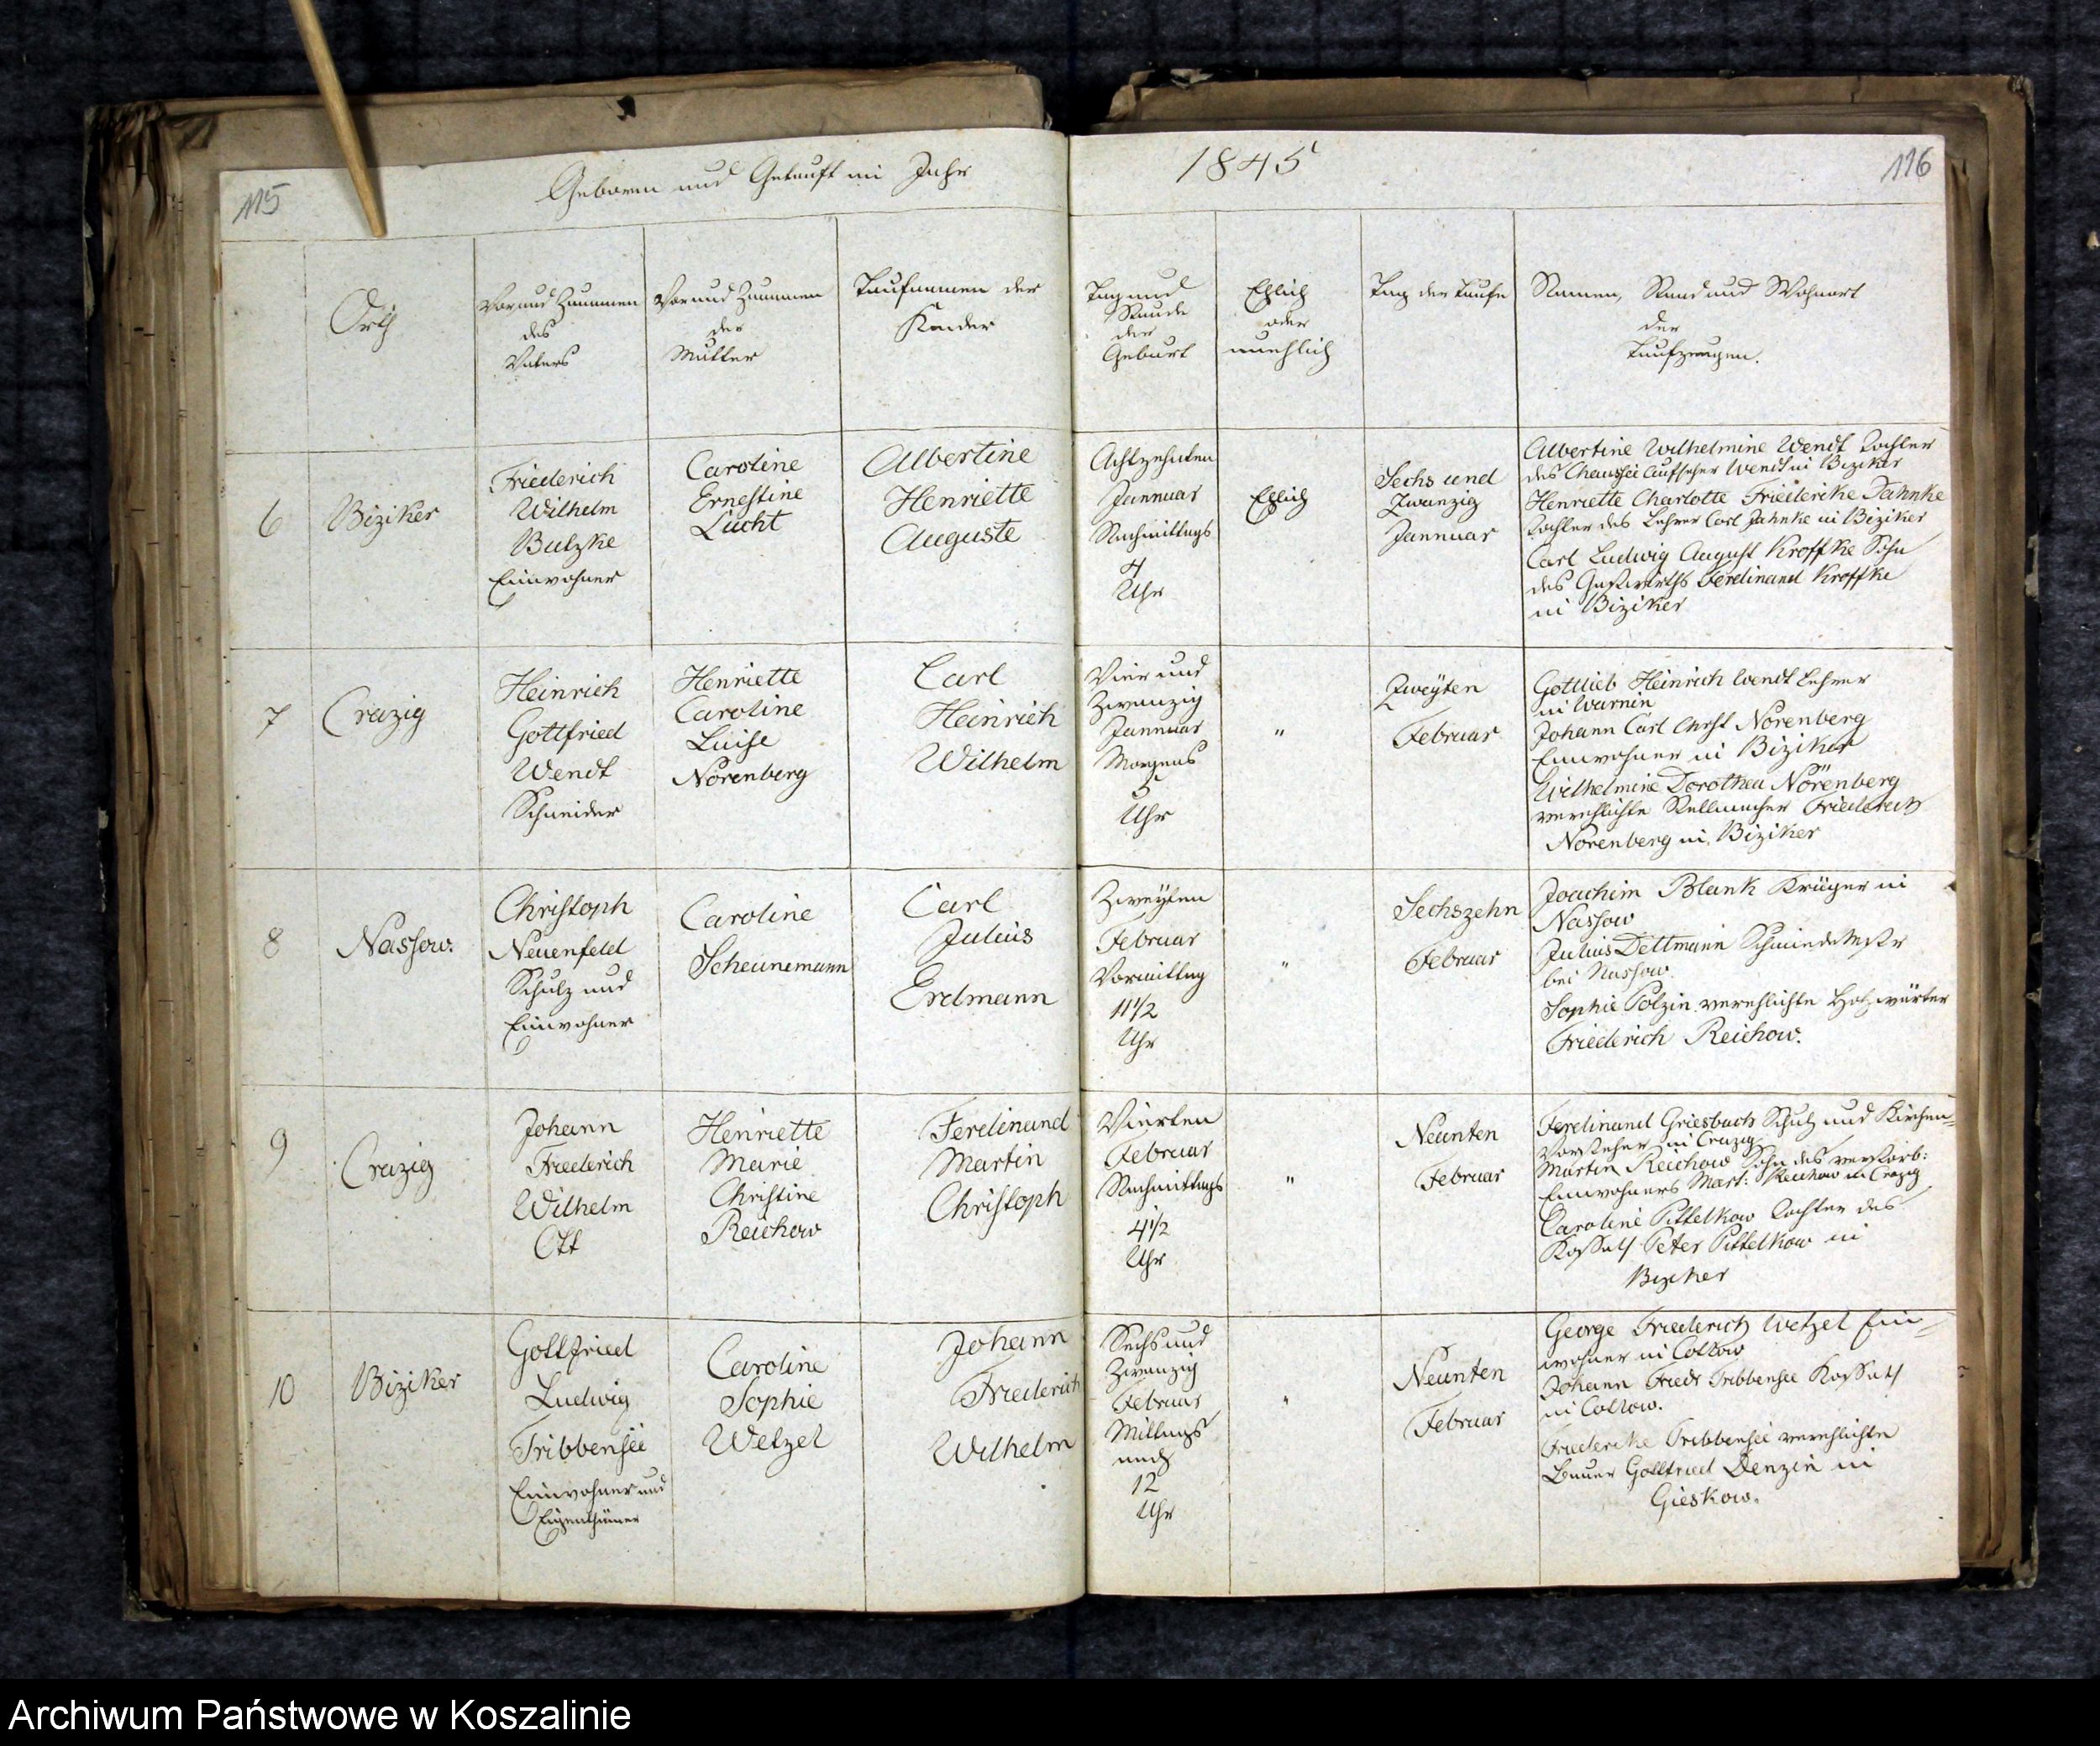 115
Geboren und Getauft im Jahr
1845
116
Orth
Vor und Zunamen
des
Vaters
Vor und Zunamen
der
Mutter
Taufnamen der
Kinder
Tag und
Stunde
der
Geburt
Ehlich
oder
unehlich
Tag der Taufe
Namen, Stand und Wohnort
der
Taufzeugen.
6
Biziker
Friederich
Wilhelm
Butzke
Einwohner
Caroline
Ernestine
Lücht
Albertine
Henriette
Auguste
Achtzehnten
Jannuar
Nachmittags
4
Uhr
Ehlich
Sechs und
Zwanzig
Jannuar
Albertine Wilhelmine Wendt Tochter
des Chaussee Aufseher Wendt in Biziker
Henriette Charlotte Friederike Jahnke
Tochter des Lehrer Carl Jahnke in Biziker
Carl Ludwig August Kroffke Sohn
des Gastwirths Ferdinand Kroffke
in Biziker
7
Crazig
Heinrich
Gottfried
Wendt
Schneider
Henriette
Caroline
Luise
Nörenberg
Carl
Heinrich
Wilhelm
Vier und
Zwanzig
Jannuar
Morgens
5
Uhr
"
Zweÿten
Februar
Gottlieb Heinrich Wendt Lehrer
in Warnin
Johann Carl Christ Nörenberg
Einwohner in Biziker
Wilhelmine Dorothea Nörenberg
verehlichte Stellmacher Friederich
Nörenberg in Biziker
8
Nassow.
Christoph
Neuenfeld
Schulz und
Einwohner
Caroline
Scheunemann
Carl
Julius
Erdmann
Zweÿten
Februar
Vormittag
11 1/2
Uhr
"
Sechszehn
Februar
Joachim Blank Krüger in
Nassow
Julius Dettmann Schmiedemstr
bei Nassow
Sophie Polzin verehlichte Holzwärter
Friederich Reichow.
9
Crazig
Johann
Friederich
Wilhelm
Ott
Henriette
Marie
Christine
Reichow
Ferdinand
Martin
Christoph
Vierten
Februar
Nachmittags
4 1/2
Uhr
"
Neunten
Februar
Ferdinand Griesbach Schulz und Kirchen=
Vorsteher in Crazig
Martin Reichow Sohn des verstorb:
Einwohners Mart: Reichow in Crazig
Caroline Pittelkow Tochter des
Kossath Peter Pittelkow in
Biziker
10
Biziker
Gottfried
Ludwig
Tribbensee
Einwohner und
Eigenthümer
Caroline
Sophie
Wetzel
Johann
Friederich
Wilhelm
Sechs und
Zwanzig
Februar
Mittags
um
12
Uhr
"
Neunten
Februar
George Friederich Wetzel Ein=
wohner in Coltow
Johann Friedr Tribbensee Kossath
in Coltow.
Friederike Tribbensee verehlichte
Bauer Gottfried Denzin in
Gieskow.
Archiwum Państwowe w Koszalinie